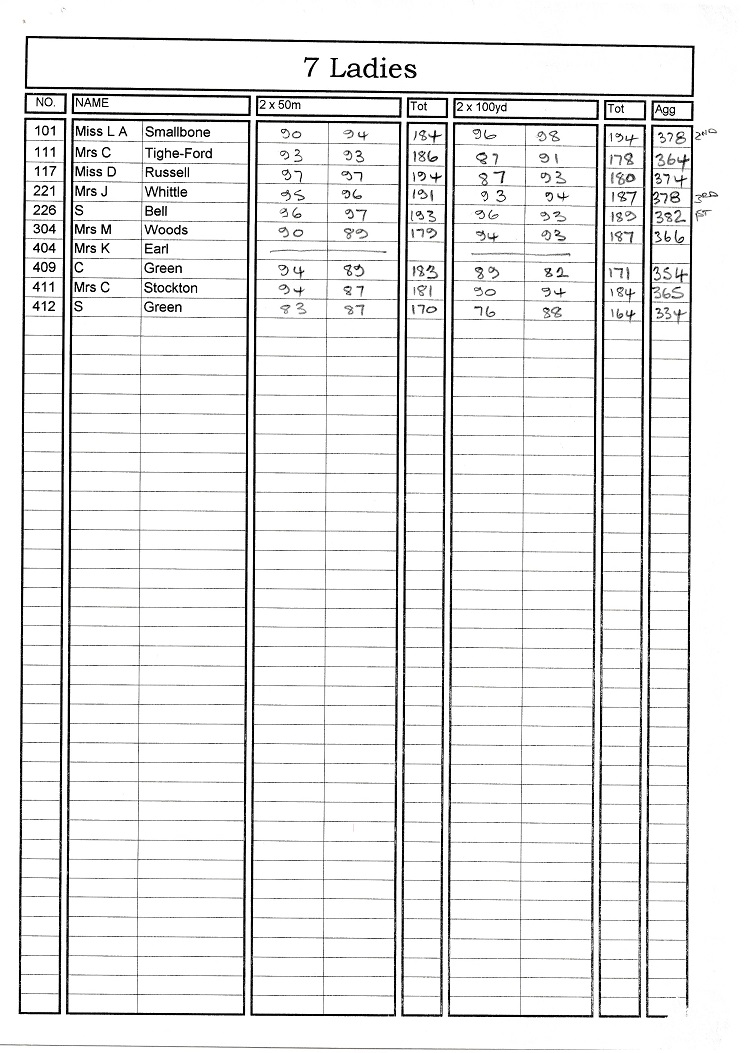 7 Ladies
NO. NAME 2 x 50m Tot 2 x 100yd Tot Agg
101 Miss L A Smallbone 90 94 184 96 98 194 378 2ND
111 Mrs C Tighe-Ford 93 93 186 87 91 178 364
117 Miss D Russell 97 97 194 87 93 180 374
221 Mrs J Whittle 95 96 191 93 94 187 378 3RD
226 S Bell 96 97 193 96 93 189 382 1ST
304 Mrs M Woods 90 89 179 94 93 187 366
404 Mrs K Earl
409 C Green 94 89 183 89 82 171 354
411 Mrs C Stockton 94 87 181 90 94 184 365
412 S Green 83 87 170 76 88 164 334